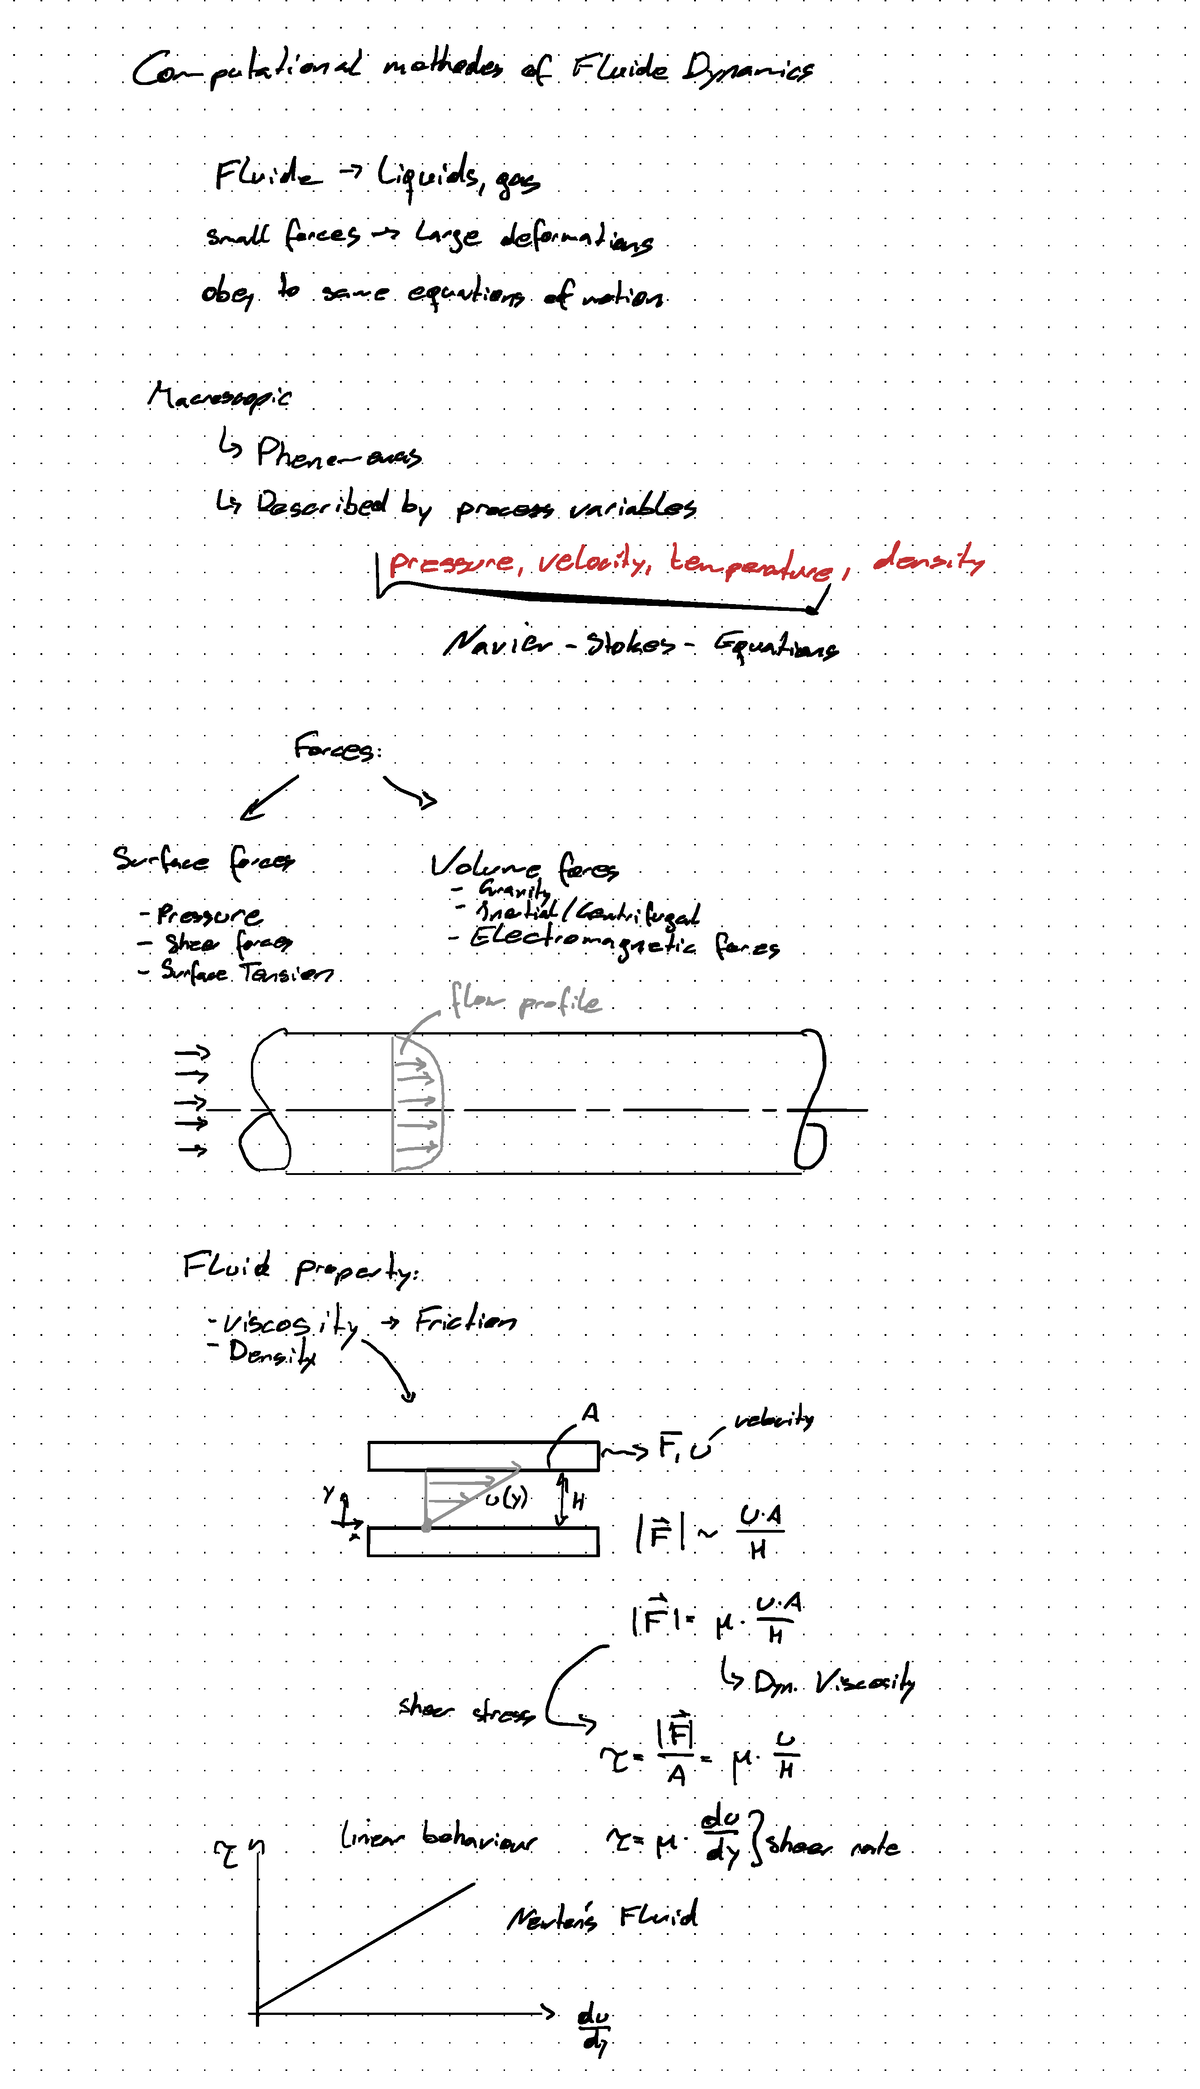 Computational methodes of Fluide Dynamics
Fluide → Liquids, gas
small forces → Large deformations
obey to same equations of motion
Macroscopic
↳ Phenomenas
↳ Described by process variables
pressure, velocity, temperature, density
Navier - Stokes - Equations
Forces:
Surface forces
- Pressure
- Sheer forces
- Surface Tension
Volume forces
- Gravity
- Inertial / Centrifugal
- Electromagnetic forces
flow profile
Fluid property:
- Viscosity → Friction
- Density
A
velocity
F, U
y
x
u(y)
H
|F⃗| ~ U·A/H
|F⃗| = μ · U·A/H
↳ Dyn. Viscosity
sheer stress
τ = |F⃗|/A = μ · U/H
τ
linear behaviour
τ = μ · du/dy } sheer rate
Newton's Fluid
du/dy